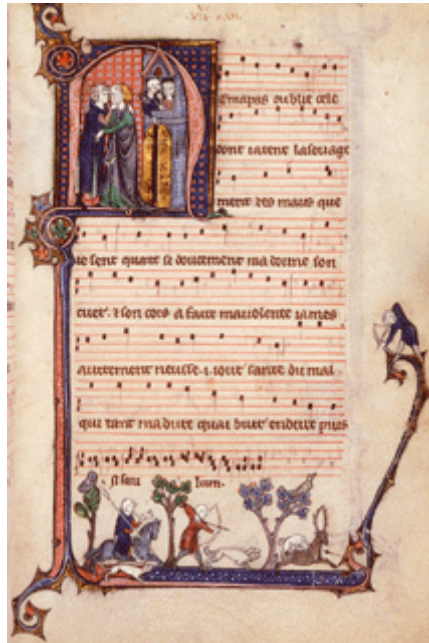 N
emapas oublie cele
dont iatent lasouage
ment des maus que
ie sent quant si doucement ma donne son
cuer. 7 son cors a faire ma volente iames
autrement neusse. 1. iour sante du mal
qui tant ma dure quai
si sen bien.